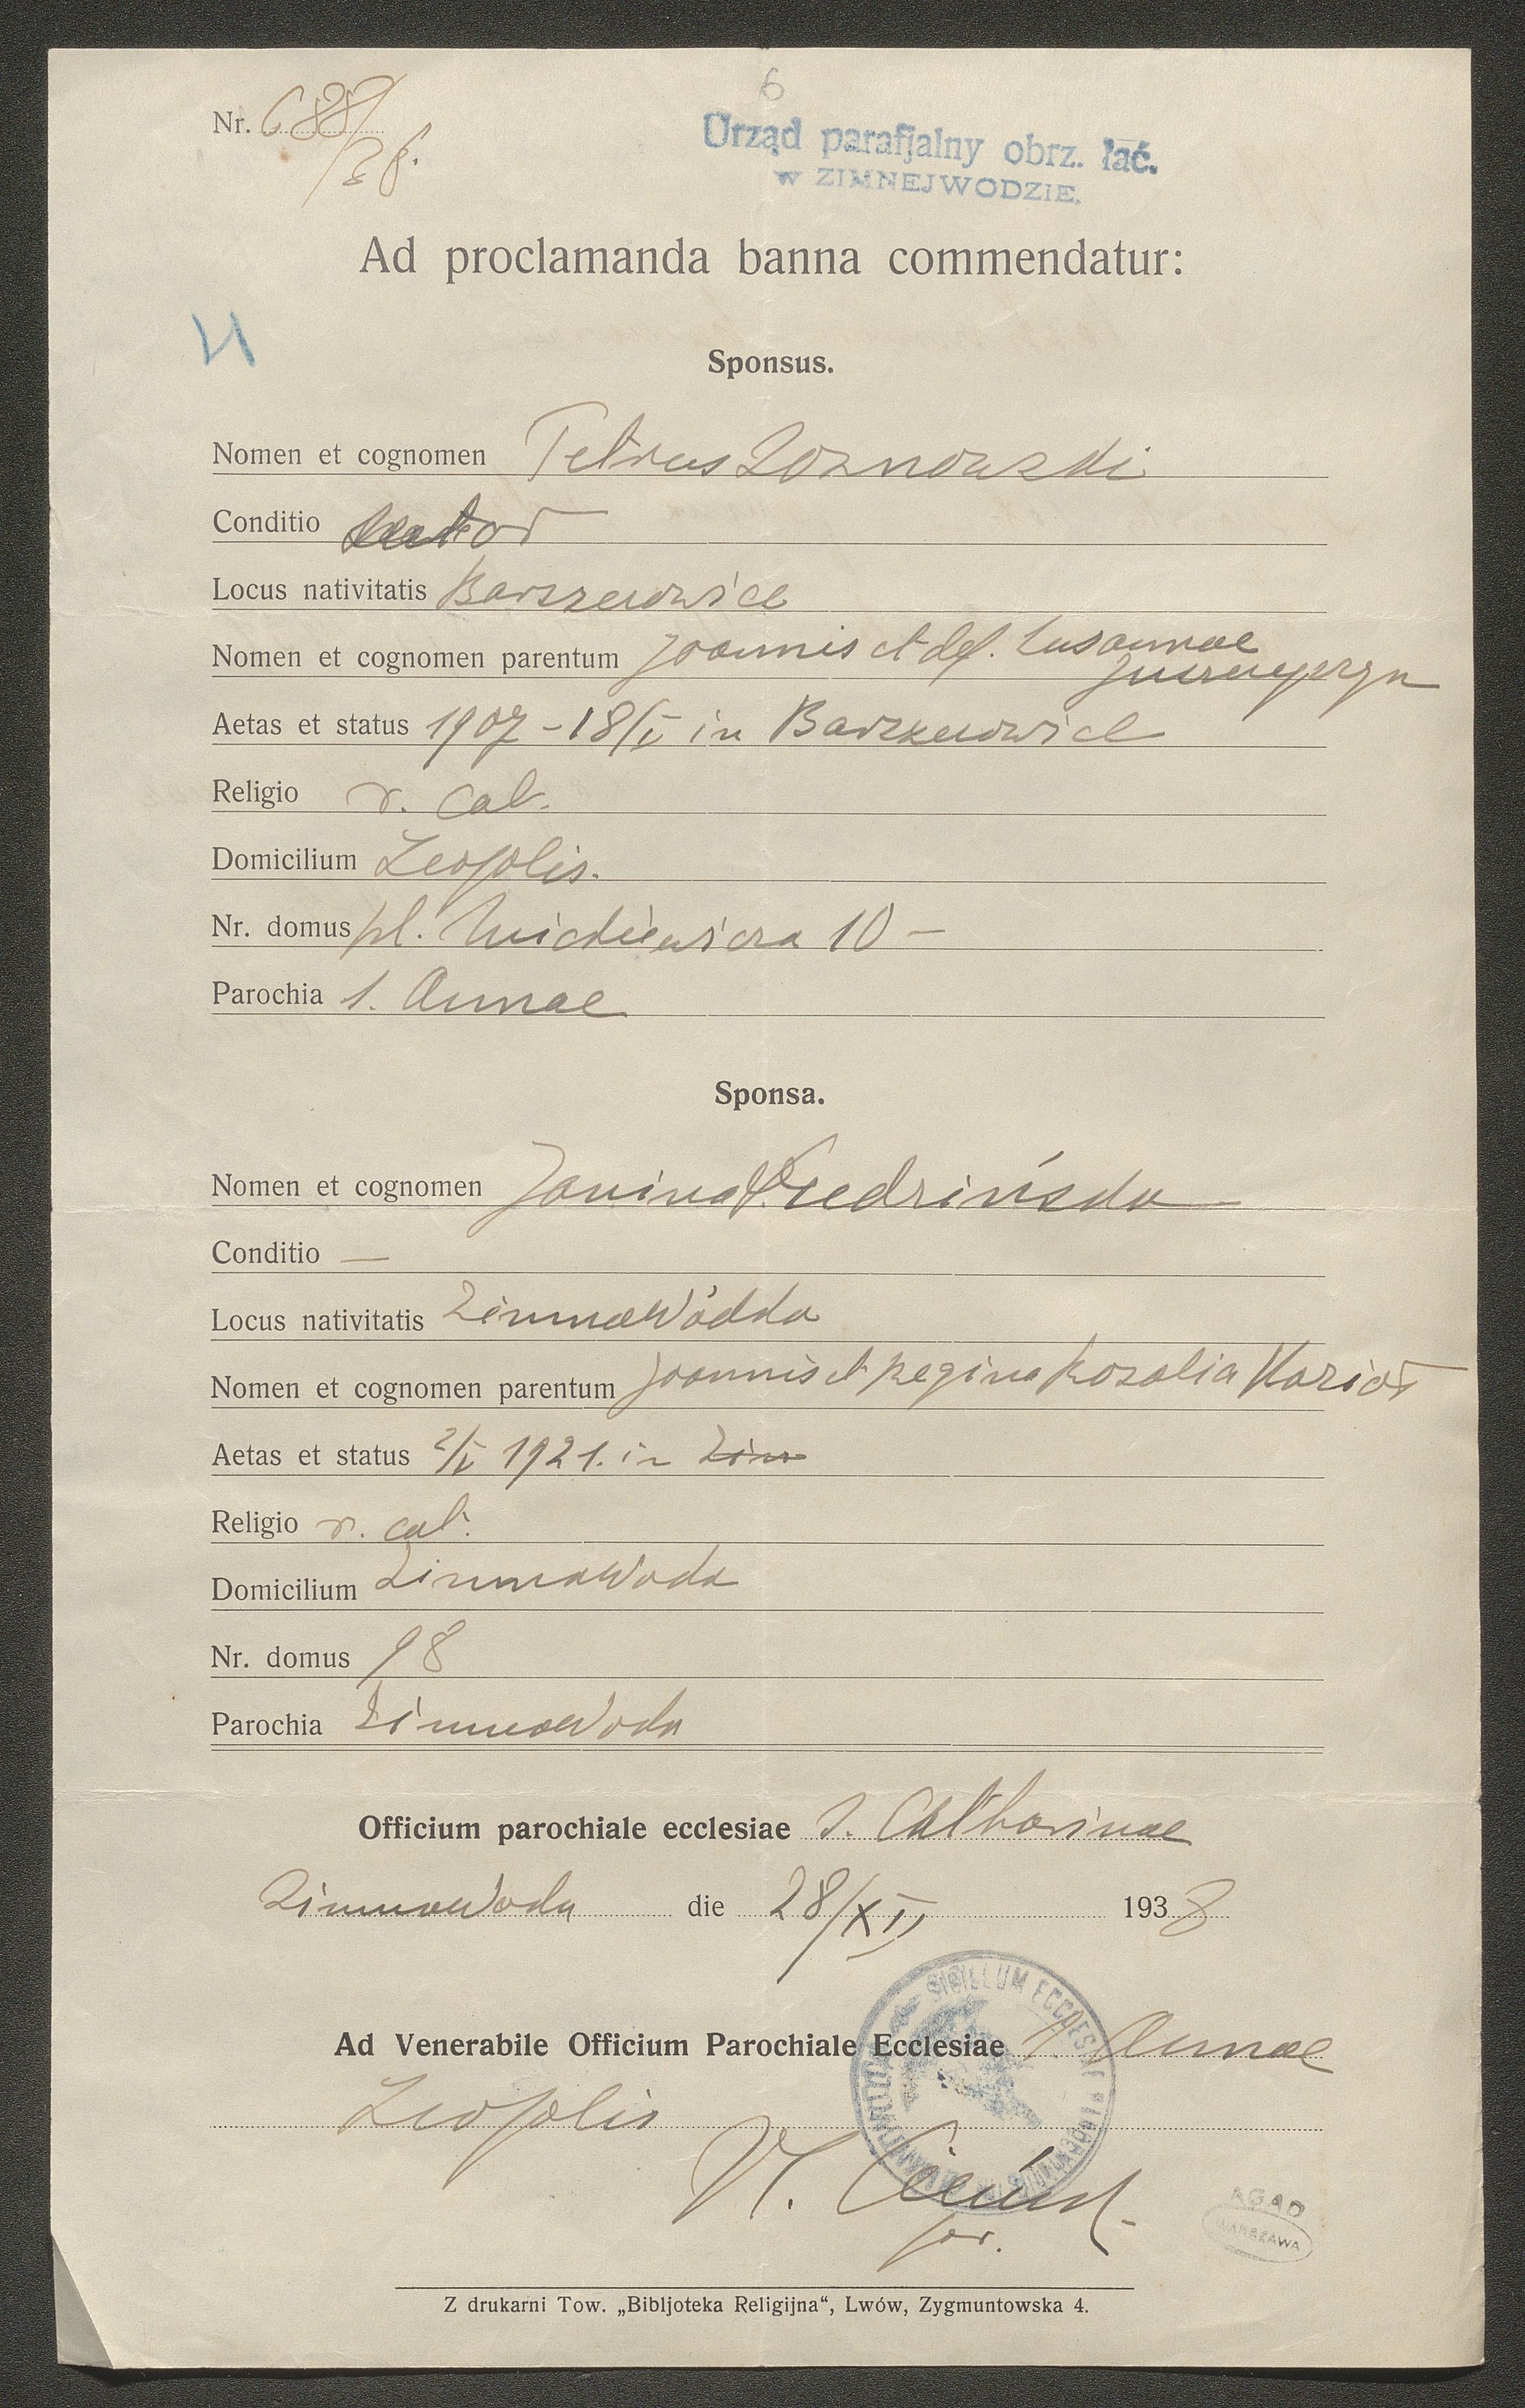 6
Nr. 688/38.
Urząd parafjalny obrz. łać.
w ZIMNEJWODZIE.
Ad proclamanda banna commendatur:
Sponsus.
Nomen et cognomen Petrus Łoznowski
Conditio
Locus nativitatis Barszczowice
Nomen et cognomen parentum Joannis et def. Susannae
Aetas et status 1907 - 18/I in Barszczowice
Religio r. cat.
Domicilium Leopolis.
Nr. domus pl. Mickiewicza 10 -
Parochia s. Annae
Sponsa.
Nomen et cognomen Janina
Conditio —
Locus nativitatis Zimnawódda
Nomen et cognomen parentum Joannis et Regina Rozalia
Aetas et status 2/I 1921. in Zim
Religio r. cat.
Domicilium Zimnawoda
Nr. domus 98
Parochia Zimnawoda
Officium parochiale ecclesiae S. Catharinae
Zimnawoda die 28/XII 1938
SIGILLUM ECCLESIAE
Ad Venerabile Officium Parochiale Ecclesiae S. Annae
Leopolis
AGAD
WARSZAWA
Z drukarni Tow. „Bibljoteka Religijna“, Lwów, Zygmuntowska 4.